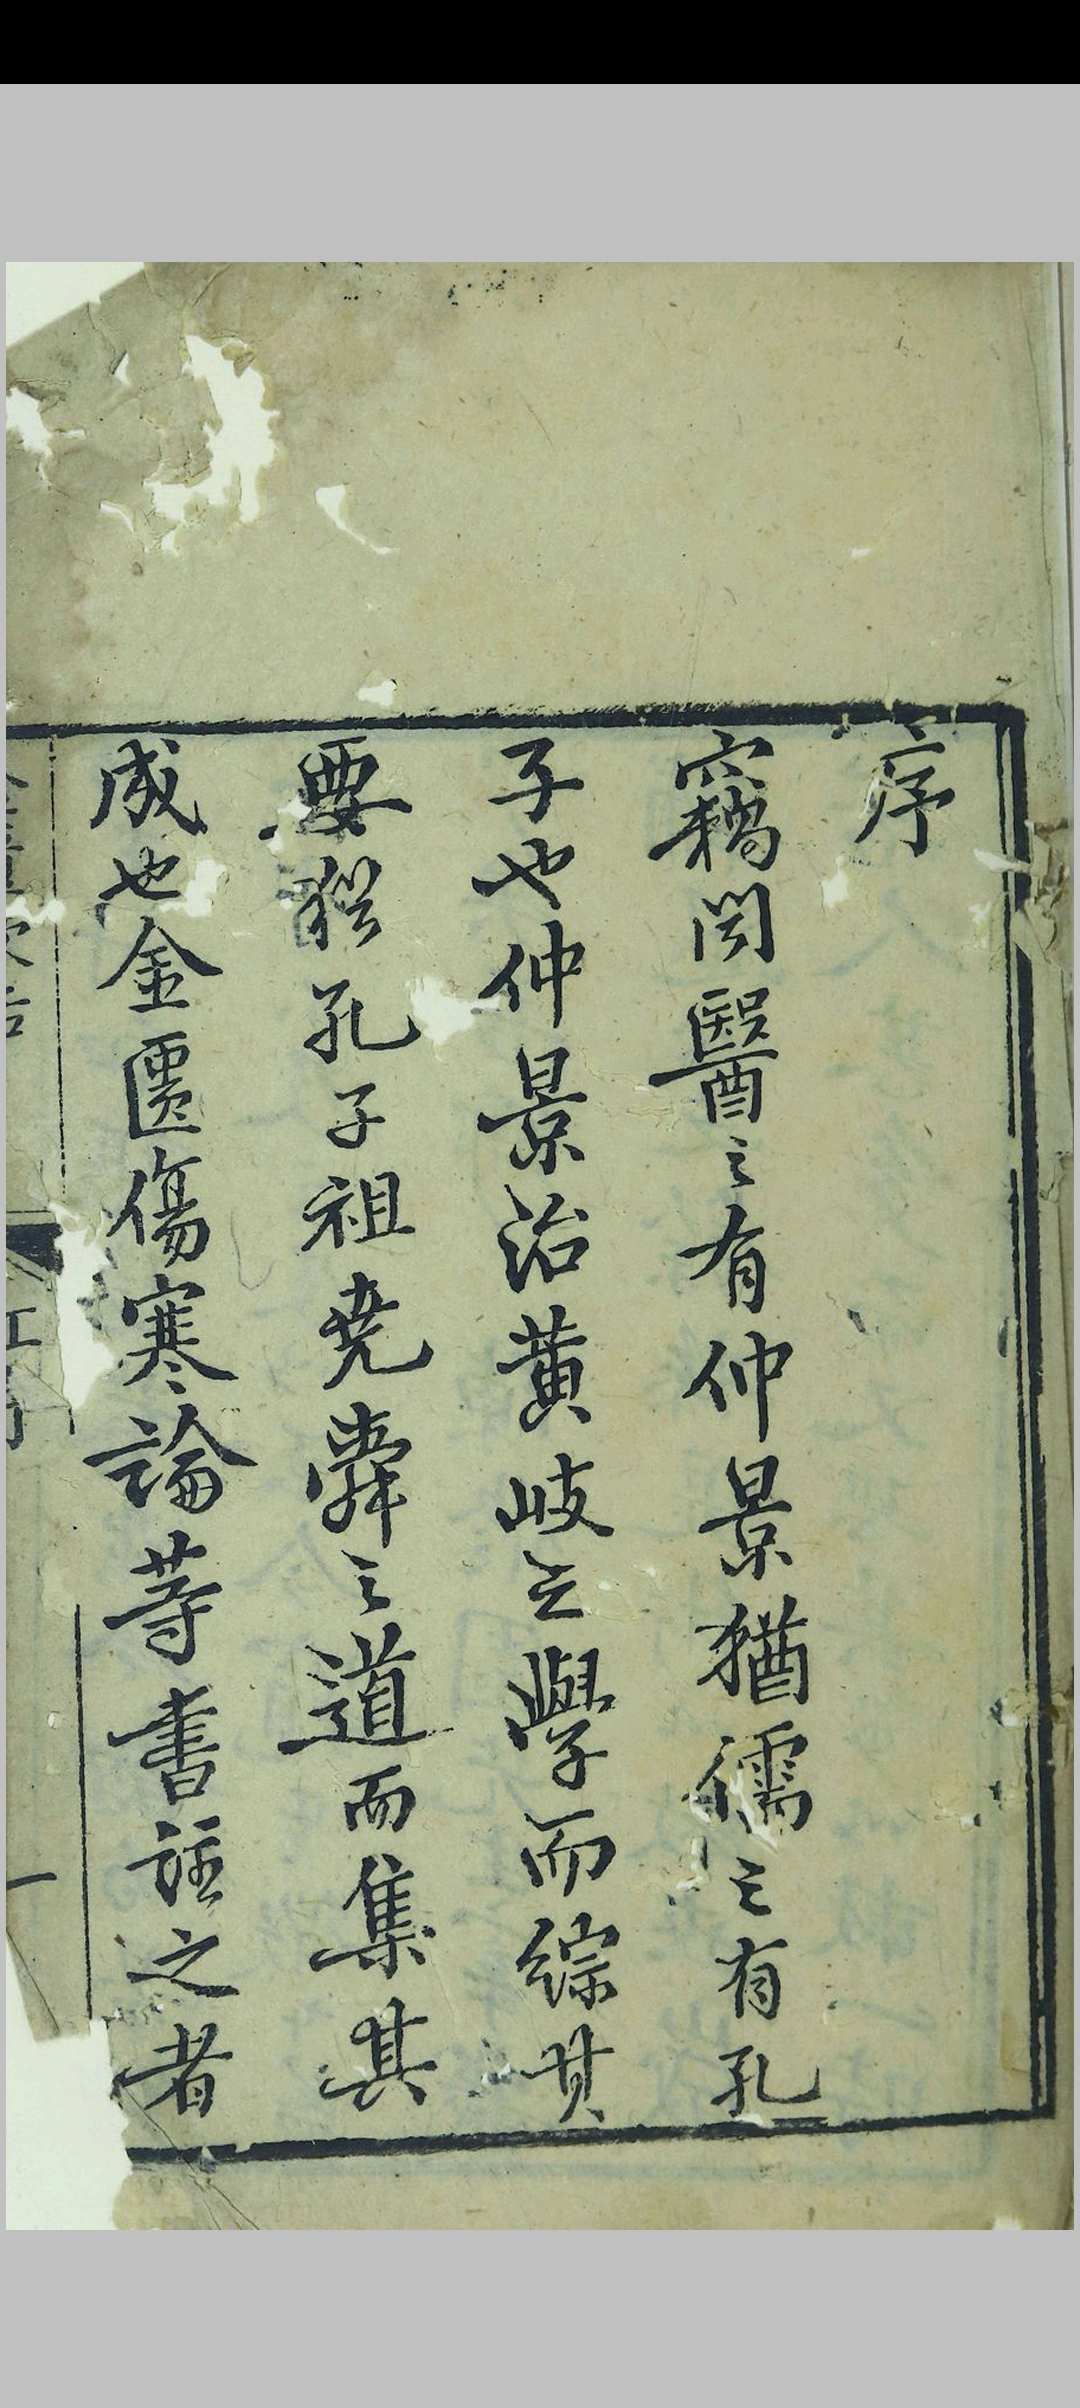 序
竊聞醫之有仲景猶儒之有孔
子也仲景治黄岐之學而綜其
要猶孔子祖堯舜之道而集其
成也金匱傷寒論等書註之者
一